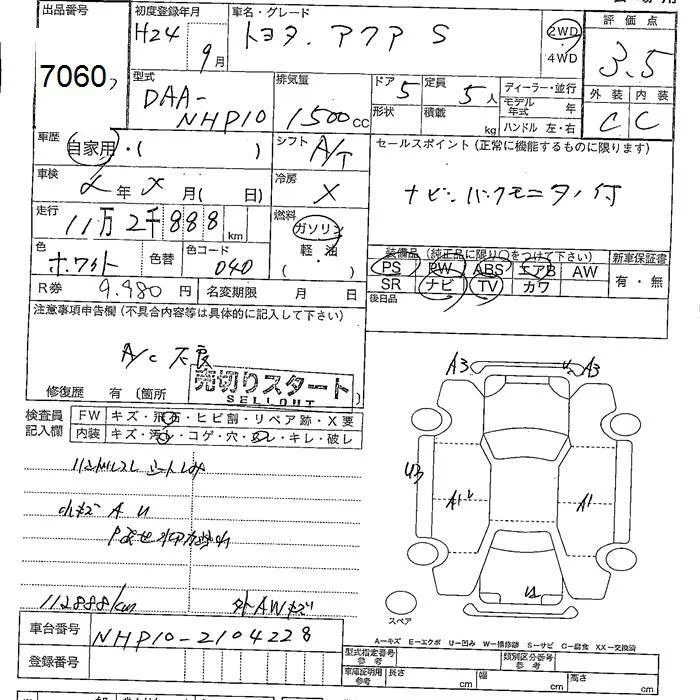 出品番号
7060
初度登録年月
H24年 9月
車名・グレード
トヨタ. アクア S
2WD
・
4WD
評価点
3.5
外装 内装
C C
型式
DAA-
NHP10
排気量
1500cc
ドア 5
形状
定員 5人
積載 kg
ディーラー・並行
モデル年式 年
ハンドル 左・右
車歴
自家用・( )
シフト A/T
セールスポイント (正常に機能するものに限ります)
ナビ. バックモニター付
車検
年 月( 日)
冷房 X
走行
11万2千888km
燃料
ガソリン
軽・油
( )
色
ホワイト
色替
色コード
040
装備品 (純正品に限り○をつけて下さい)
PS PW ABS エアB AW
SR ナビ TV カワ
新車保証書
有・無
後日品
R券 9.980円
名変期限 月 日
注意事項申告欄 (不具合内容等は具体的に記入して下さい)
A/C 不良
修復歴 有 (箇所 )
売切りスタート
SELLOUT
検査員
記入欄
FW キズ・飛石・ヒビ割・リペア跡・X要
内装 キズ・汚れ・コゲ・穴・スレ・キレ・破レ
ハンドルスレ シートしみ
小キズ A U
112888/km
外AWキズ
A3 A3
U3
A1
A1
U
スペア
車台番号 NHP10-2104228
登録番号
A—キズ E—エクボ U—凹み W—補修跡 S—サビ C—腐食 XX—交換済
型式指定番号
参考
類別区分番号
参考
車庫証明用
参考
長さ cm
幅 cm
高さ cm